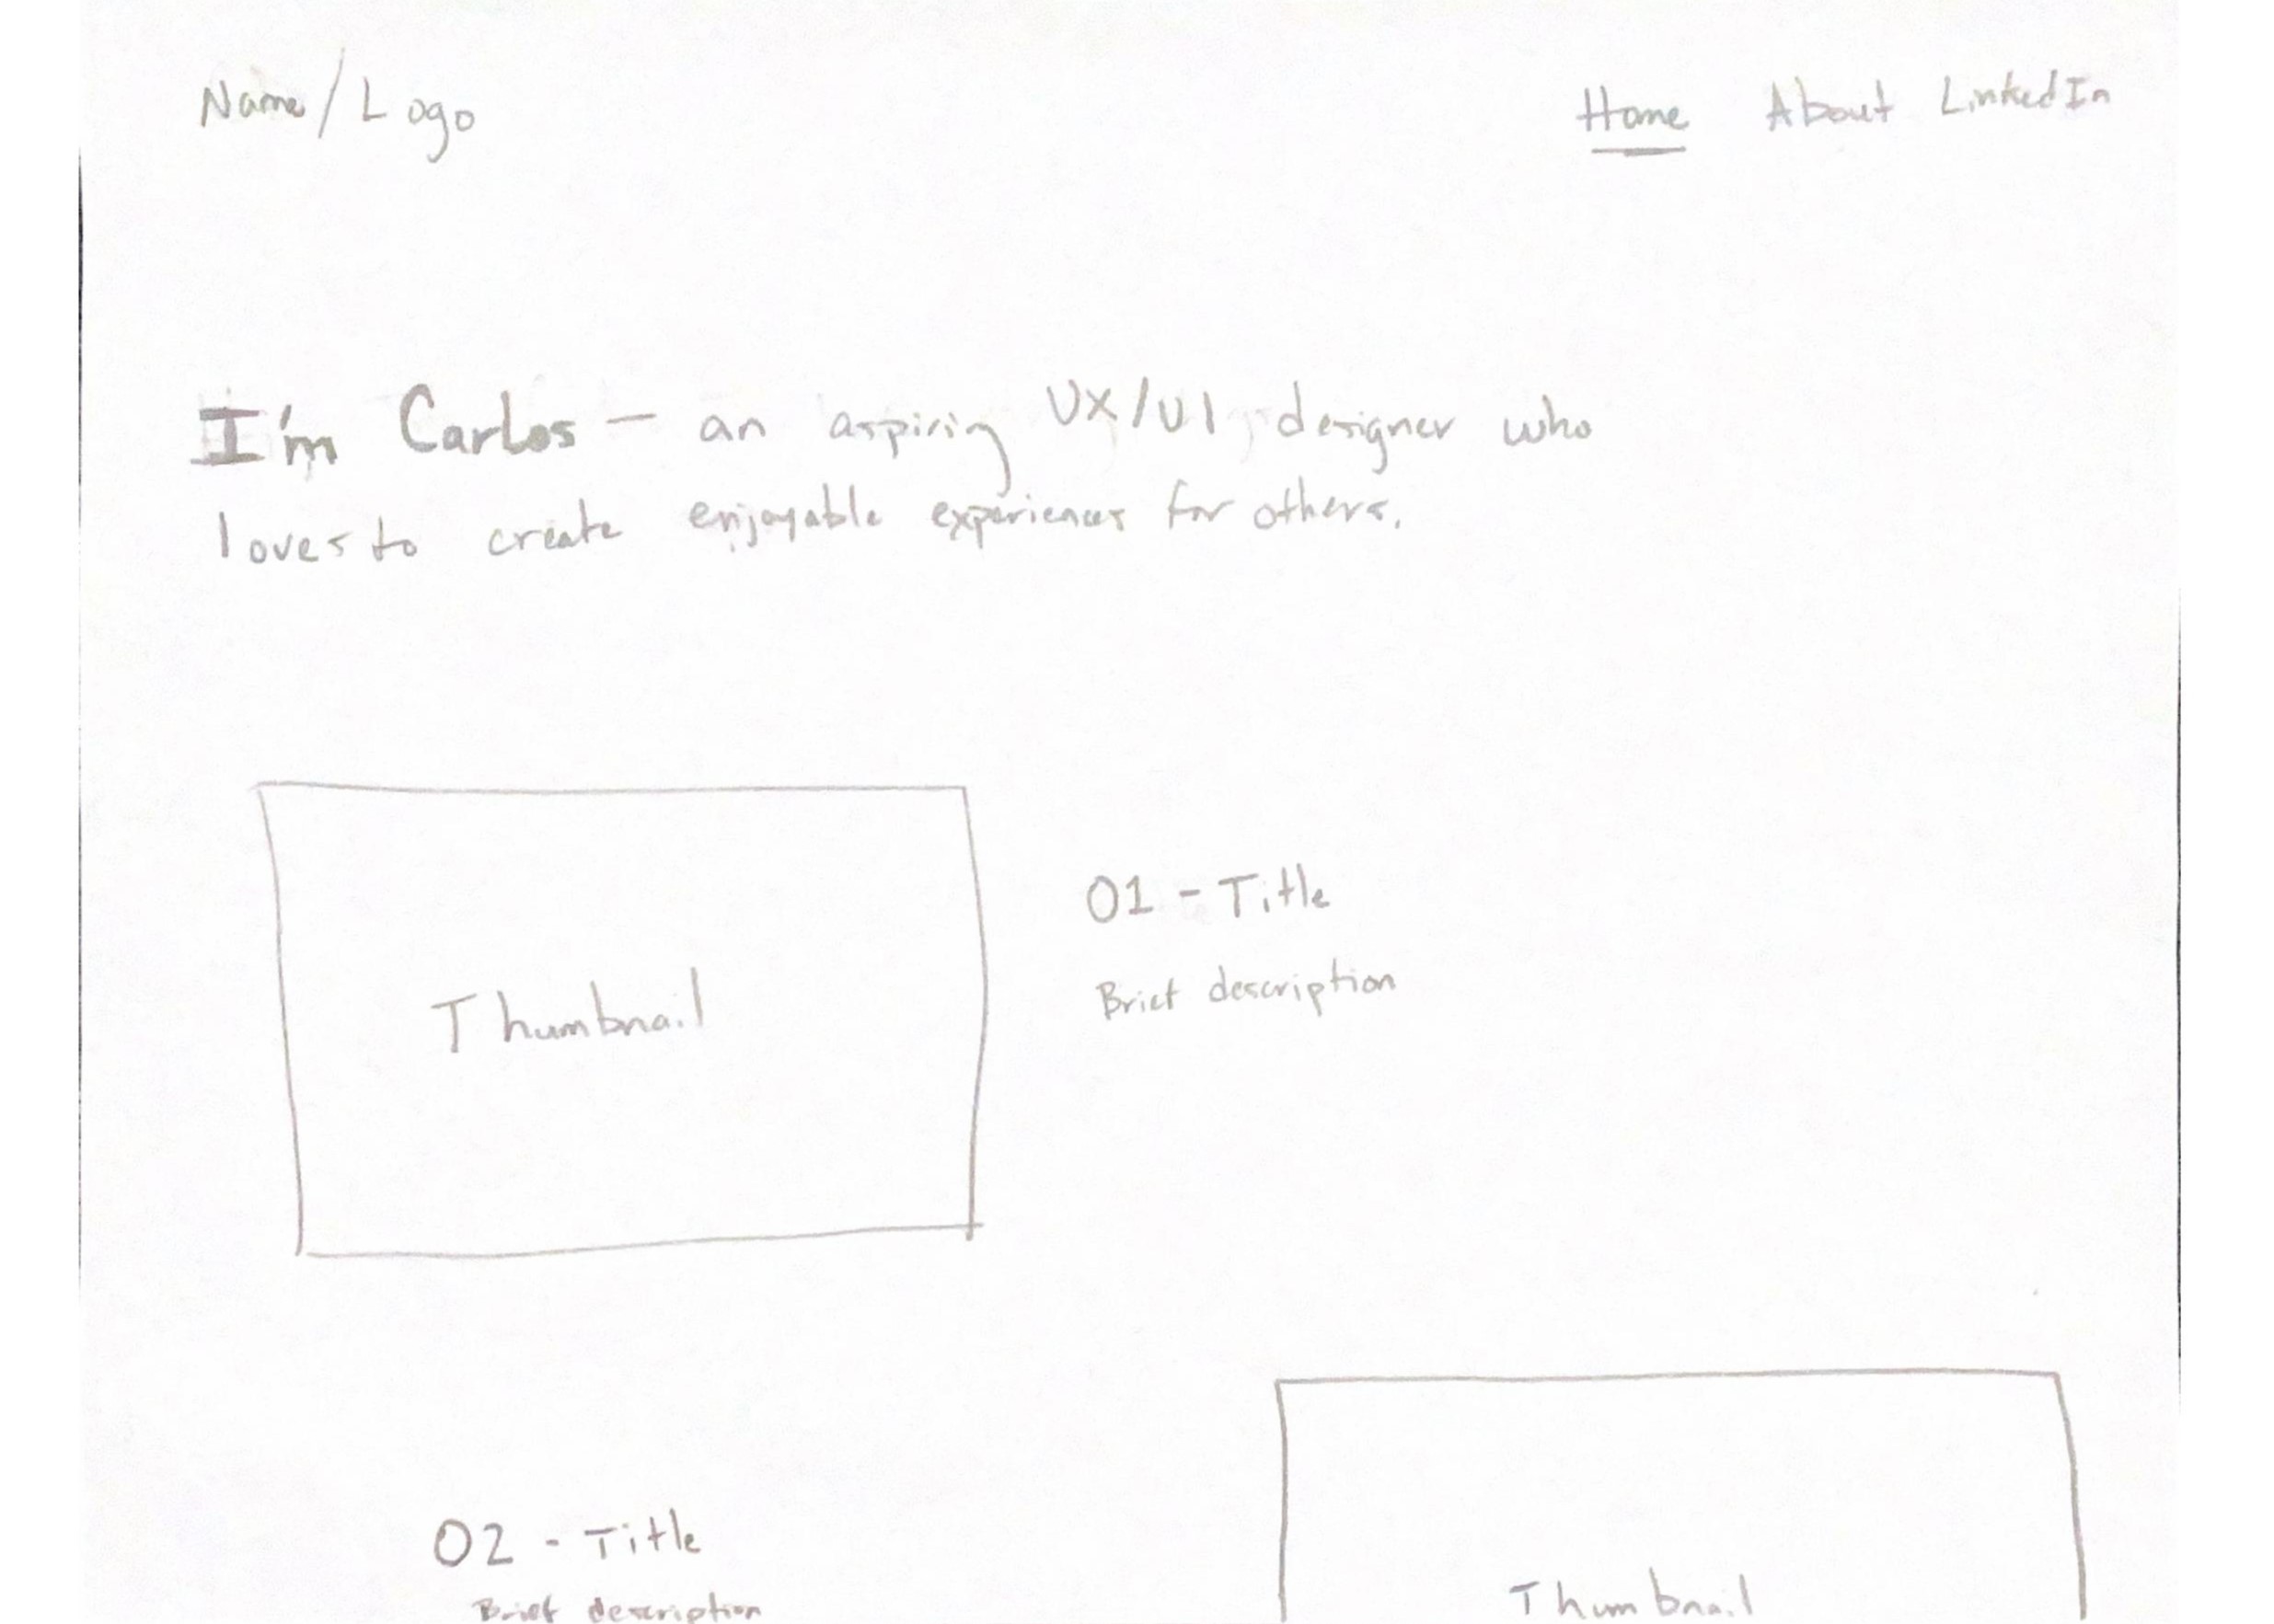 Name/Logo
Home About LinkedIn
I'm Carlos — an aspiring UX/UI designer who
loves to create enjoyable experiences for others.
Thumbnail
01 - Title
Brief description
02 - Title
Brief description
Thumbnail